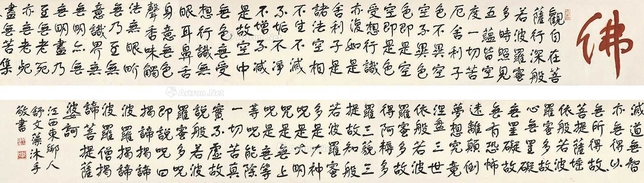 佛
觀自在菩
薩行深般
若波羅蜜
多時照見
五蘊皆空
度一切苦
厄舍利子
色不異空
空不異色
色即是空
空即是色
受想行識
亦復如是
舍利子是
諸法空相
不生不滅
不垢不淨
不增不減
是故空中
無色無受
想行識無
眼耳鼻舌
身意無色
聲香味觸
法無眼界
乃至無
意識界無
無明亦無
無明盡乃
至無老死
亦無老死
盡無苦集
滅道無智
亦無得以
無所得故
菩提薩埵
依般若波
羅蜜多故
心無罣礙
無罣礙故
無有恐怖
遠離顛倒
夢想究竟
涅槃三世
諸佛依般
若波羅蜜
多故得阿
耨多羅三
藐三菩提
故知般若
波羅蜜多
是大神
咒是大明
咒是無上
咒是無等
等咒能除
一切苦真
實不虛故
說般若波
羅蜜多咒
即說咒曰
揭諦揭諦
波羅揭諦
波羅僧揭
諦菩提薩
婆訶
江西東鄉人
舒文藻沐手
敬書